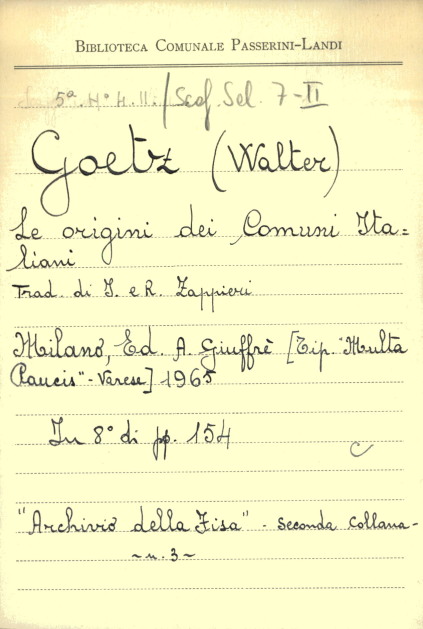 BIBLIOTECA COMUNALE PASSERINI-LANDI
5ª. H. H. II. / Scaf. Sel. 7-II
Goetz (Walter)
Le origini dei Comuni Ita=
liani
Trad. di I. e R. Zappieri
Milano, Ed. A. Giuffrè [Tip. "Multa
Paucis" - Varese] 1965
In 8° di pp. 154
C
"Archivio della Fisa" - Seconda Collana -
~ n. 3 ~